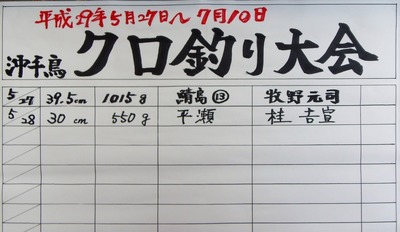 平成29年5月27日〜7月10日
沖手島 クロ釣り大会
5/27 39.5cm 1015g 鞆島⑬ 牧野元司
5/28 30cm 550g 平瀬 桂吉宣